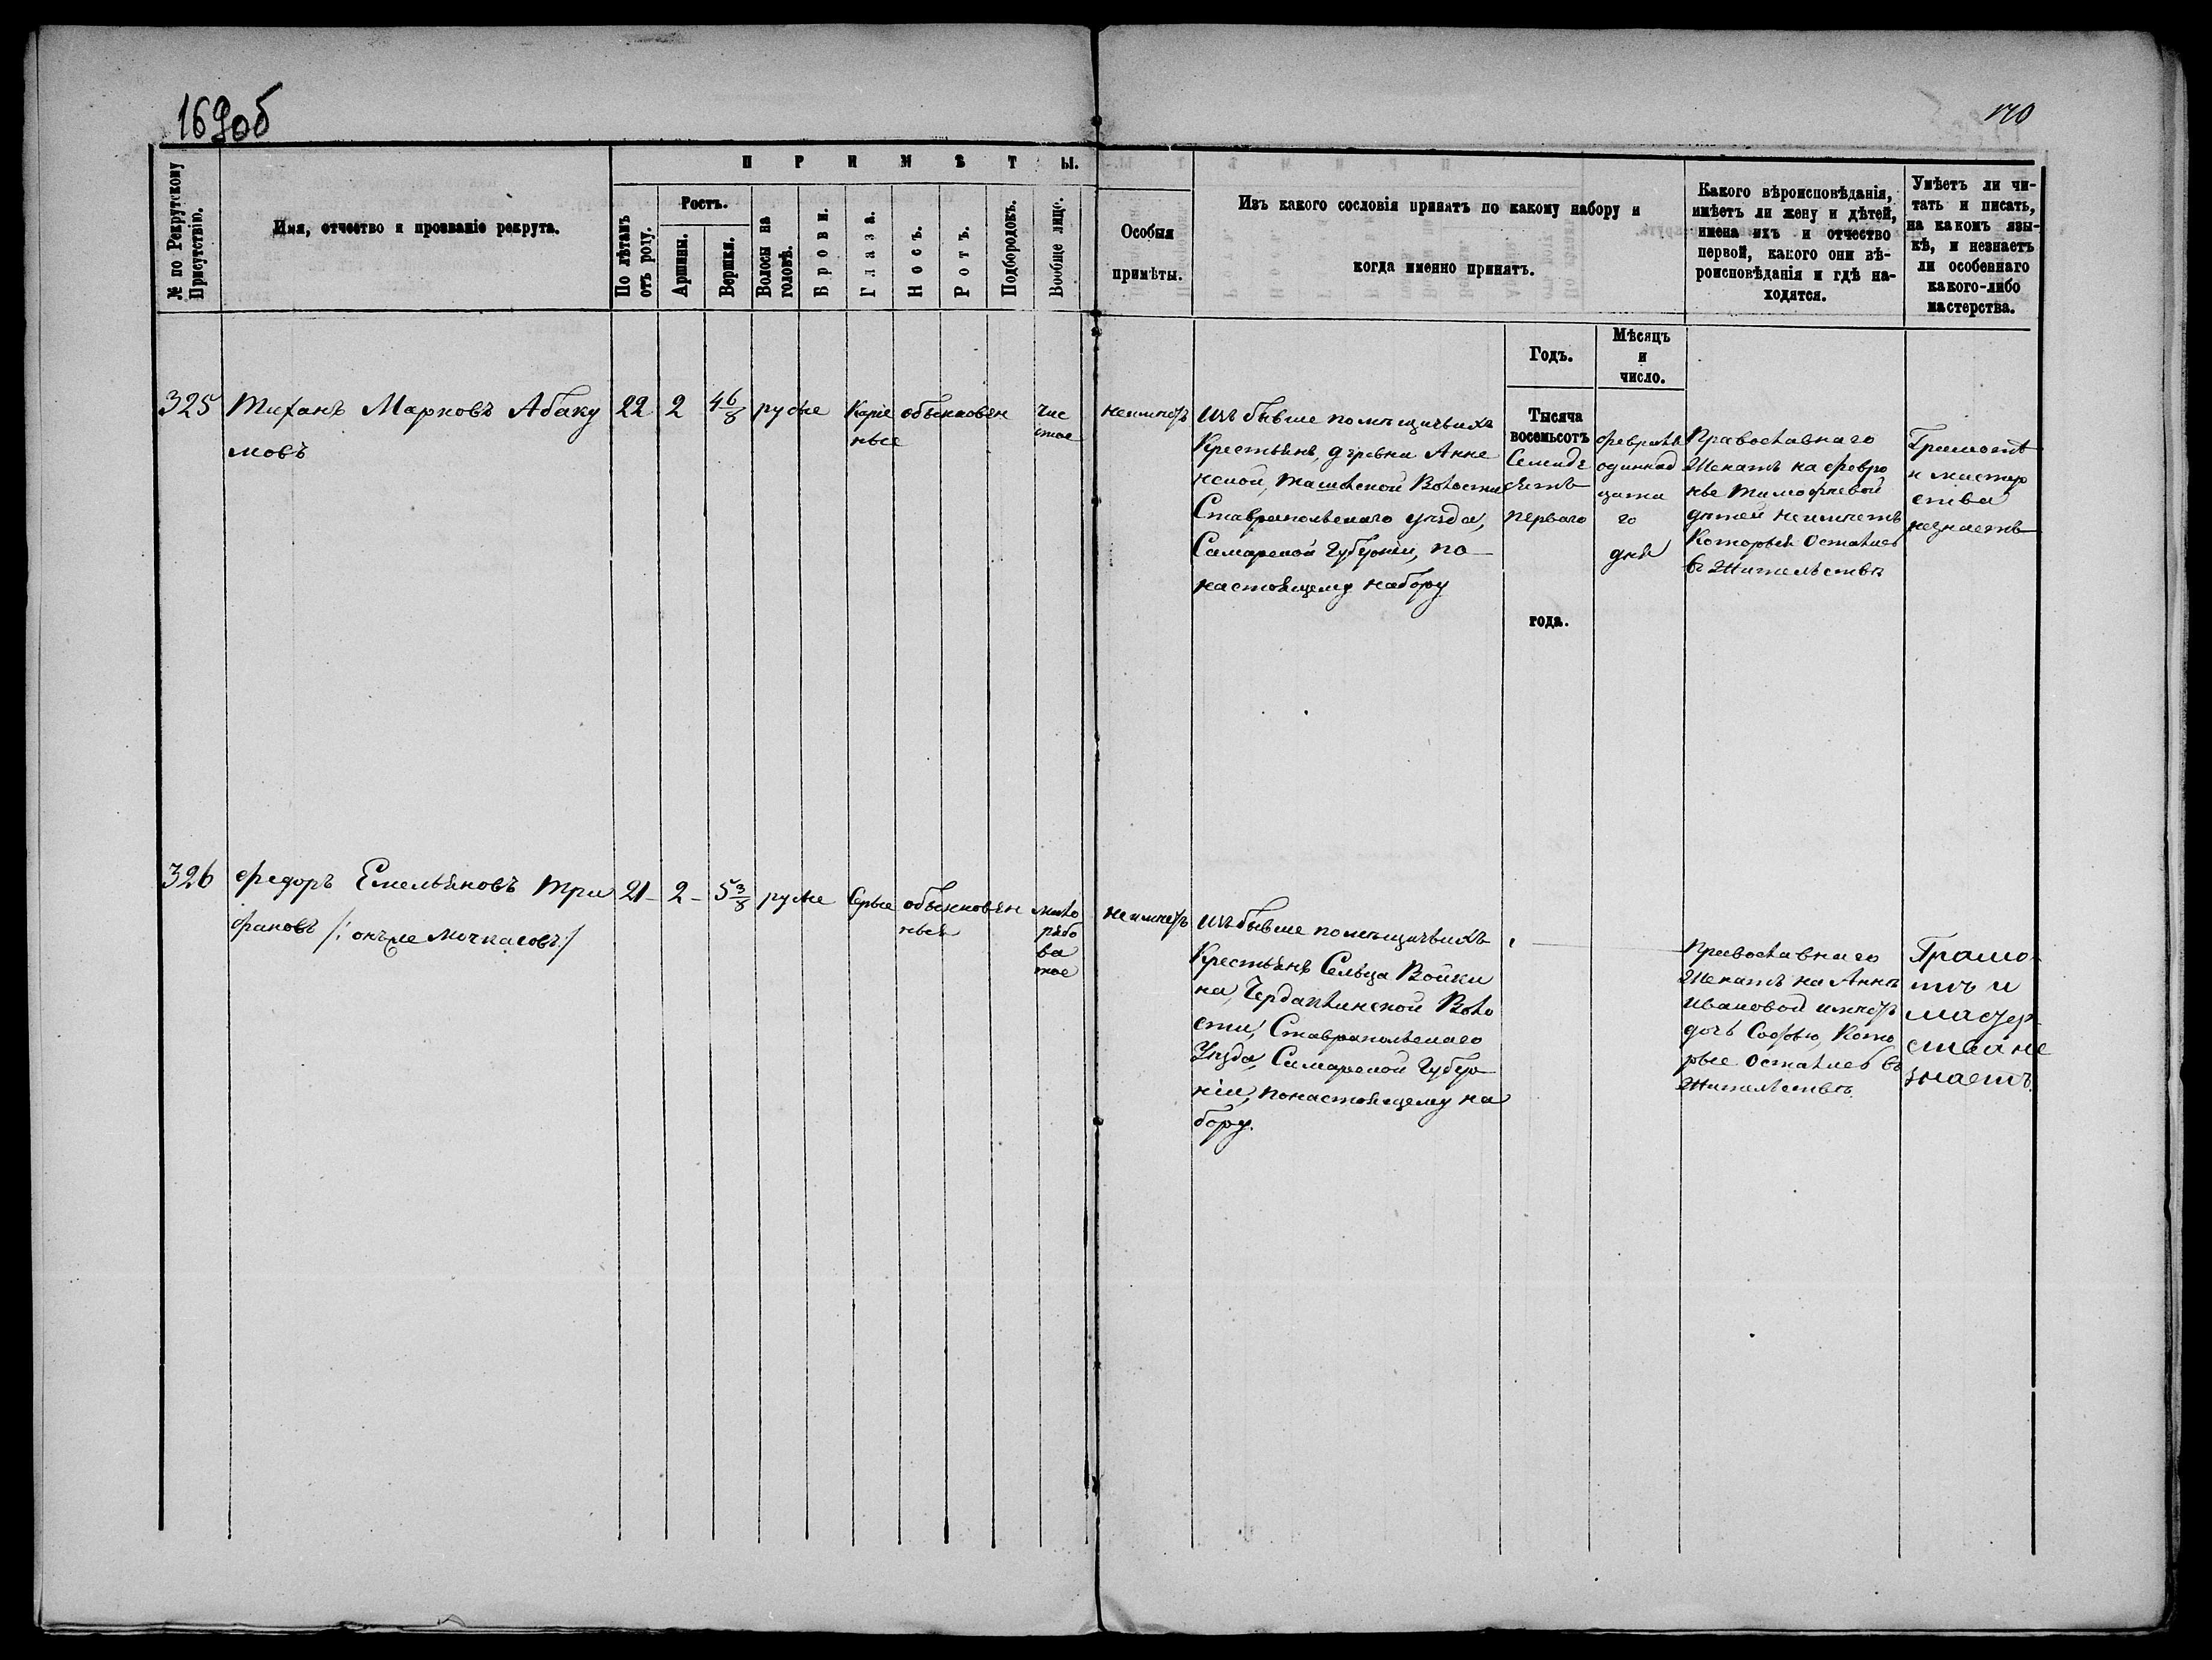 169об
170
№ по Рекрутскому Присутствію.
Имя, отчество и прозваніе рекрута.
ПРИМѢТЫ.
По лѣтамъ отъ роду.
Ростъ.
Аршины.
Вершки.
Волосы на головѣ.
Брови.
Глаза.
Носъ.
Ротъ.
Подбородокъ.
Вообще лицо.
Особыя
примѣты.
Изъ какого сословія принятъ по какому набору и
когда именно принятъ.
Какого вѣроисповѣданія,
имѣетъ ли жену и дѣтей,
имена ихъ и отчество
первой, какого они вѣ-
роисповѣданія и гдѣ на-
ходятся.
Умѣетъ ли чи-
тать и писать,
на какомъ язы-
кѣ, и незнаетъ
ли особеннаго
какого-либо
мастерства.
Годъ.
Мѣсяцъ
и
число.
325
Тиханъ Марковъ Абаку
мовъ
22
2
4 6/8
русые
Каріе
обыкновен
ные
чис
тое
неимѣетъ
Изъ бывше помѣщичьихъ
Крестьянъ, деревни Анне
нской, Ташлской Волости
Ставропольскаго уѣзда,
Самарской Губерніи, по
настоящему набору
Тысяча
восемьсотъ
Семиде
сять
перваго
года.
февраля
одиннад
цата
го
дня
Православнаго
Женатъ на февро
нье Тимофеевой
дѣтей неимѣетъ
Которыя Остались
въ Жительствѣ
Грамотѣ
и мастер
ства
незнаетъ
326
Федоръ Емельяновъ Три
фановъ /: онъже Мочкасовъ :/
21
2
5 3/8
русые
Серые
обыкновен
ныя
мало
рябо
ва
тое
неимѣетъ
Изъ бывше помѣщичьихъ
Крестьянъ Сельца Войки
на, Чердаклинской Воло
сти, Ставропольскаго
Уѣзда, Самарской Губер
ніи, понастоящему на
бору.
Православнаго
Женатъ на Аннѣ
Ивановой имѣетъ
дочь Софью, Кото
рые Остались въ
Жительствѣ.
Грамо-
тѣ и
мастер
ства не
знаетъ.